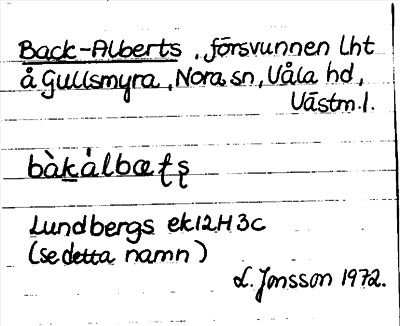 Back-Alberts, försvunnen lht
å Gullsmyra, Nora sn, Våla hd,
Västm. l.
bàkálbæʈʂ
Lundbergs ek12H3c
(se detta namn)
L. Jonsson 1972.